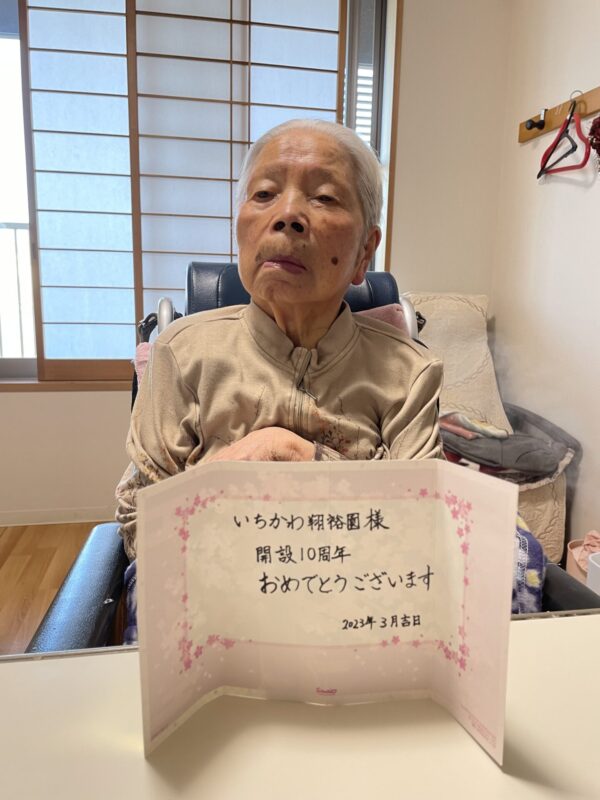 いちかわ翔裕園様
開設10周年
おめでとうございます
2023年3月吉日